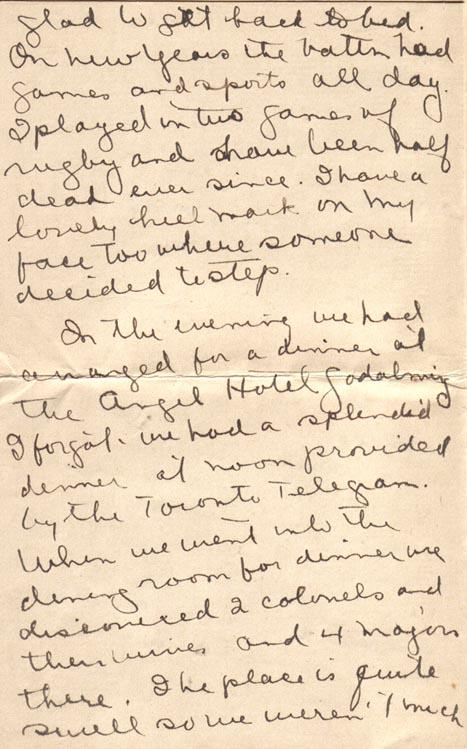 glad to get back to bed.
On New Years the battn had
games and sports all day.
I played in two games of
rugby and have been half
dead ever since. I have a
lovely heel mark on my
face too where someone
decided to step.
In the evening we had
arranged for a dinner at
the Angel Hotel Godalming
I forgot. we had a splendid
dinner at noon provided
by the Toronto Telegram.
When we went into the
dining room for dinner we
discovered 2 colonels and
their wives and 4 majors
there. The place is quite
swell so we weren't much